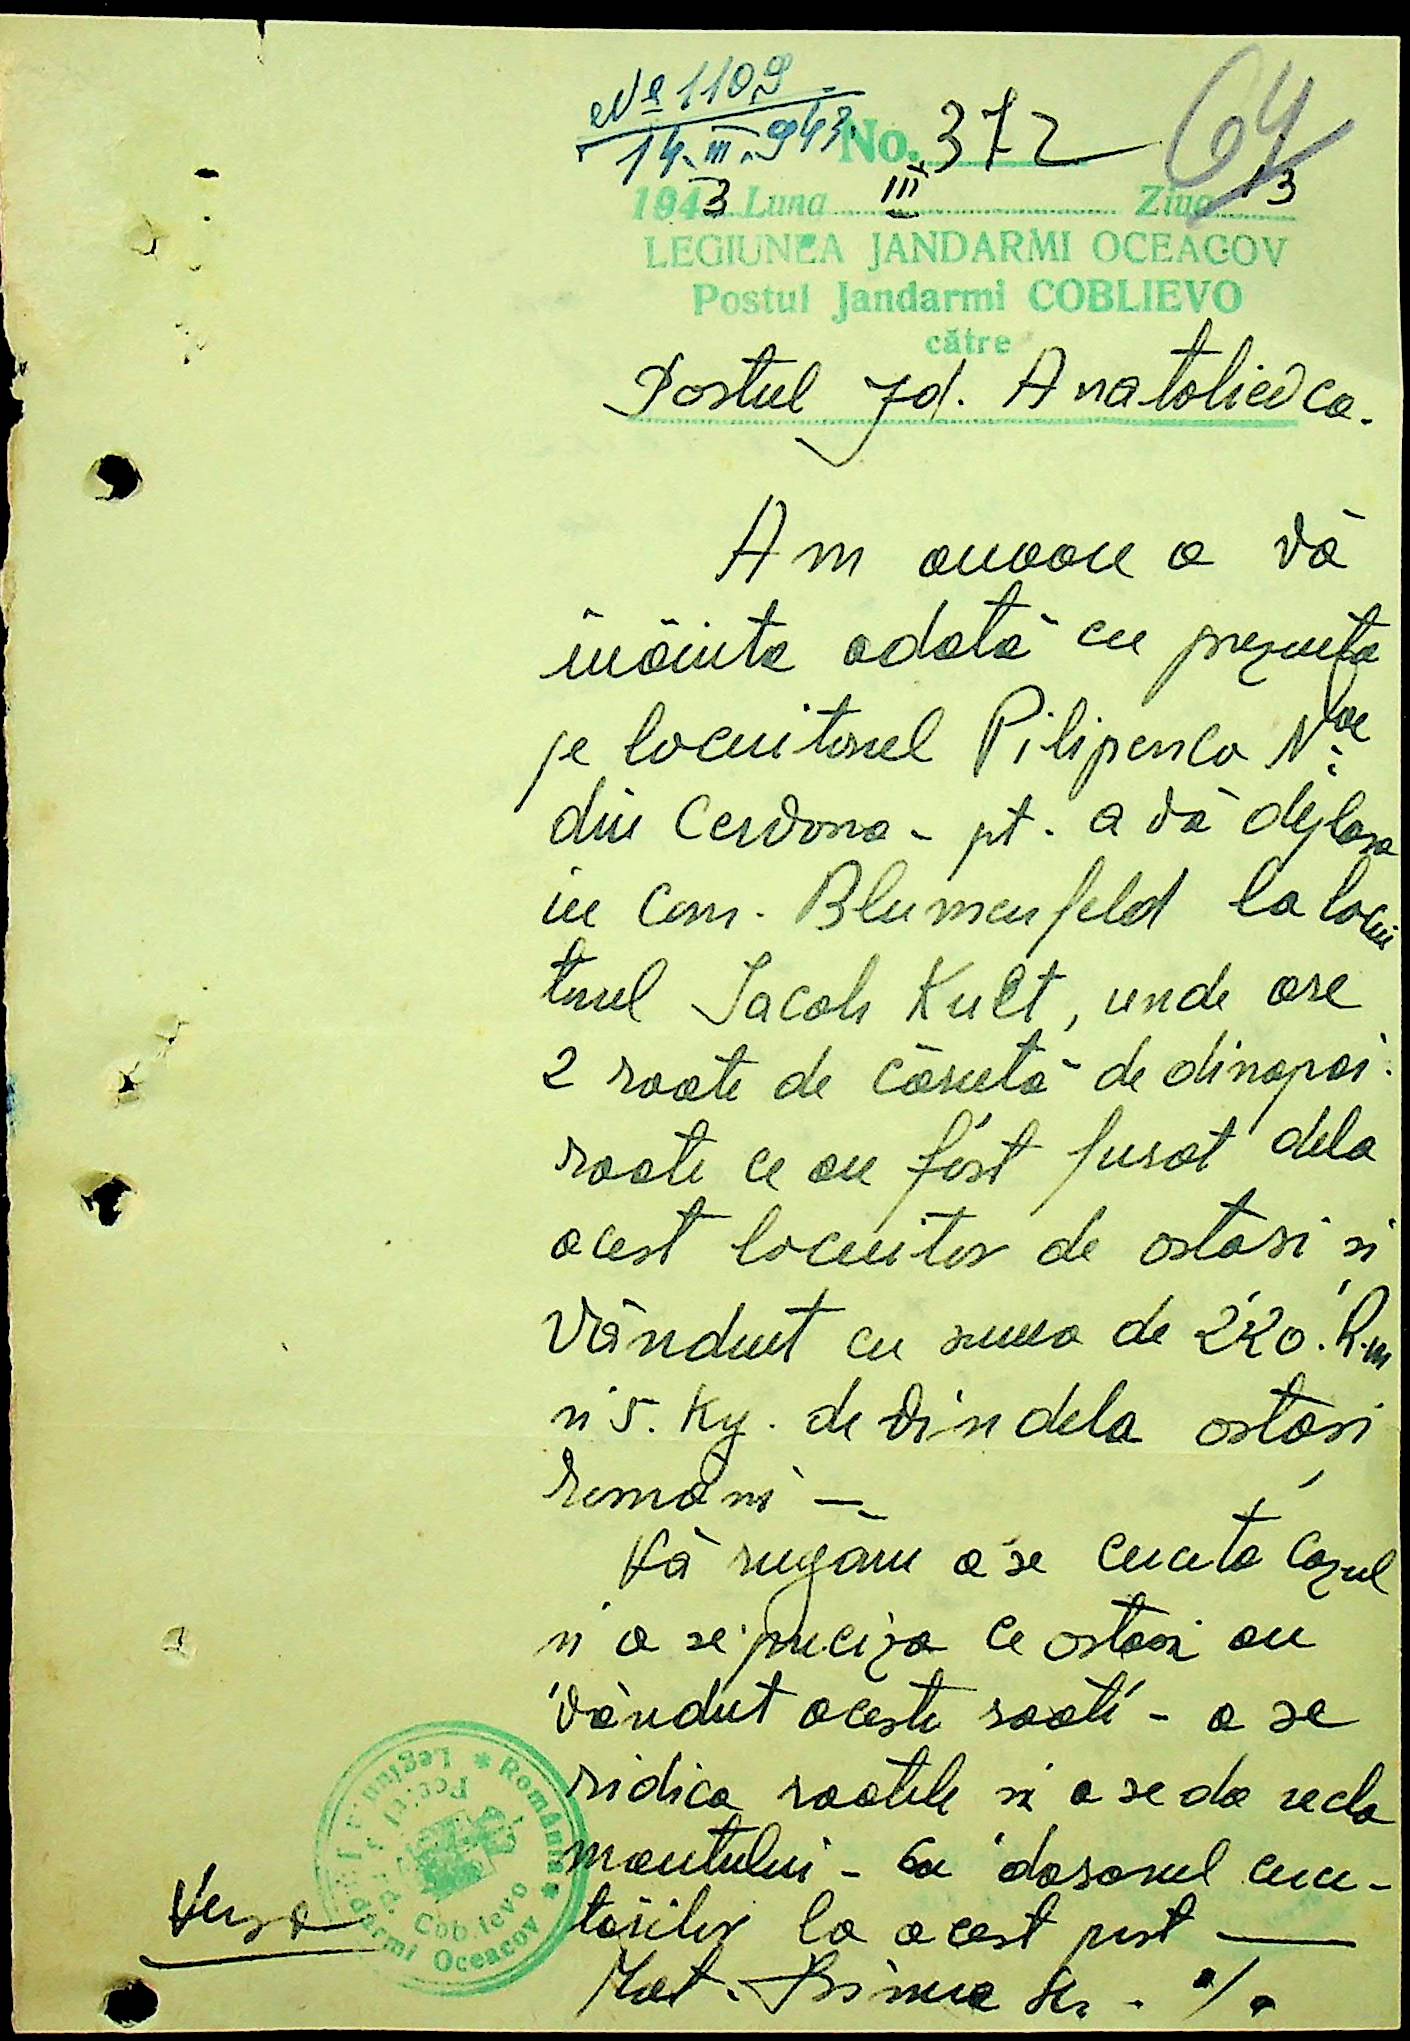 № 1109
14.III.943.
No. 372
64
1943 Luna III Ziua 13
LEGIUNEA JANDARMI OCEACOV
Postul Jandarmi COBLIEVO
către
Postul Jd. Anatolievca.
Am onoare a vă
înâinta odată cu prezenta
pe locuitorul Pilipenco Nae
din Cervona - pt. a vă deplasa
in com. Blumenfeld la locui
torul Jacob Kult, unde are
2 roate de căruță de dinapoi.
roate ce au fost furat dela
acest locuitor de ostași și
vândut cu suma de 220. R.m
și 5. Kg. de vin dela ostași
români —
Vă rugăm a se cerceta cazul
și a se preciza ce ostași au
vândut aceste roate - a se
ridica roatele și a se da recla
mantului - cu dosarul cerce-
tărilor la acest post —
Verso
România
Legiunea Jandarmi Oceacov
Coblevo